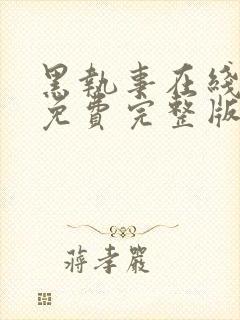 黑執事在綫
免費完整版
蔣孝嚴